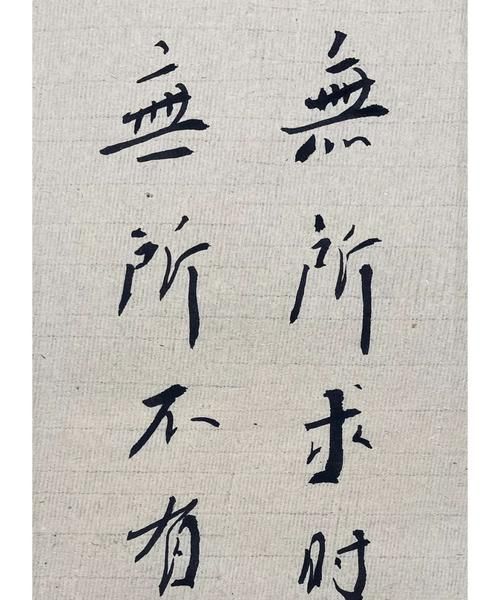 無所求时
無所不有